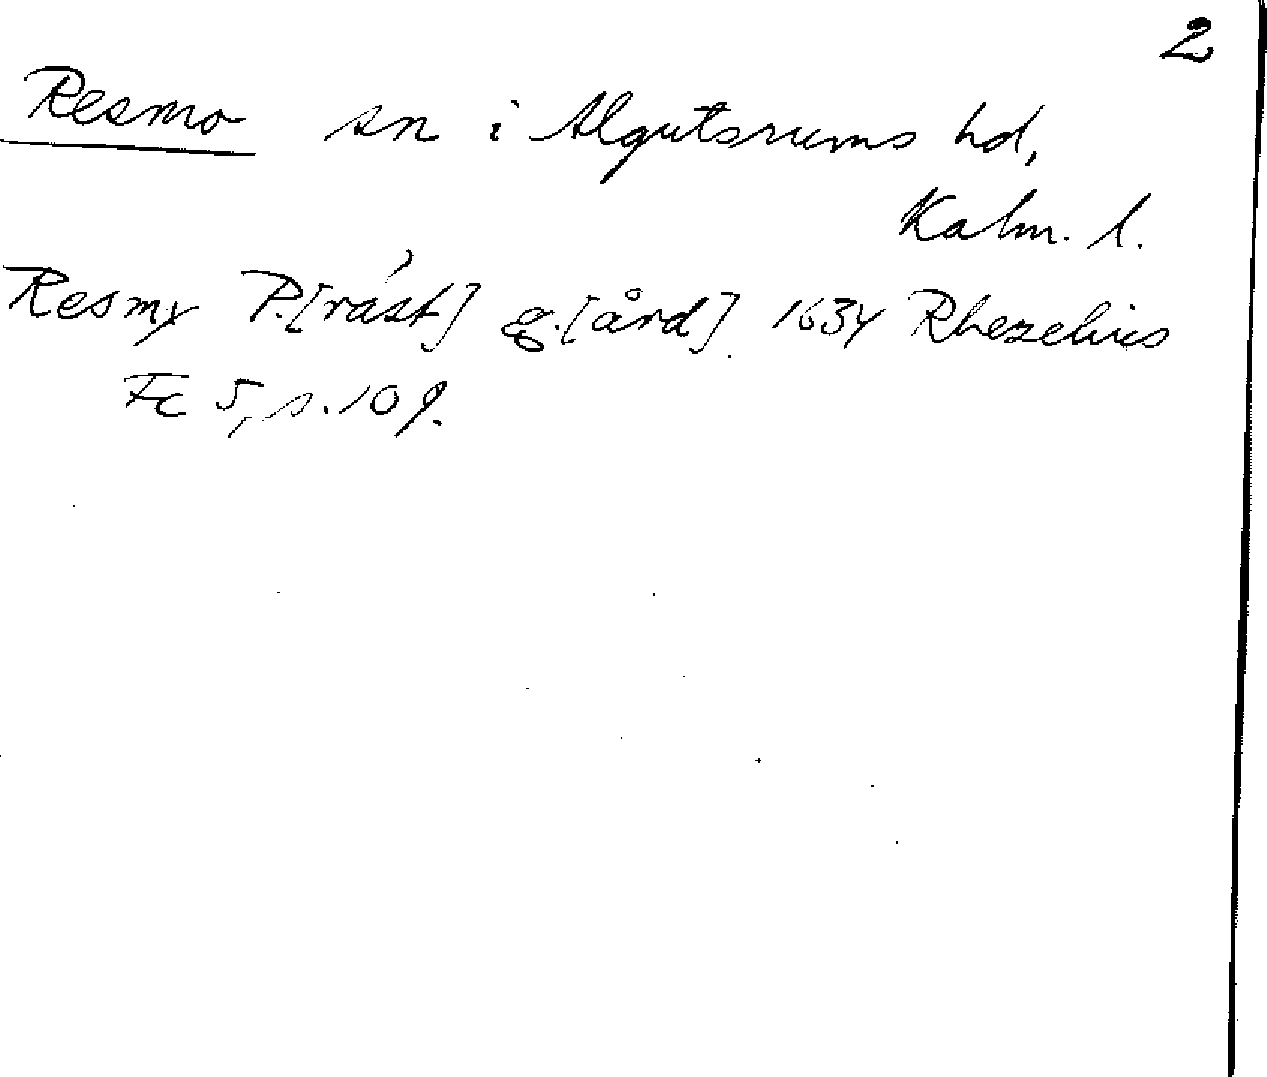 2
Resmo sn i Algutsrums hd,
Kalm. l.
Resmy P.[räst] g.[ård] 1634 Rhezelius
Fc 5, s. 109.